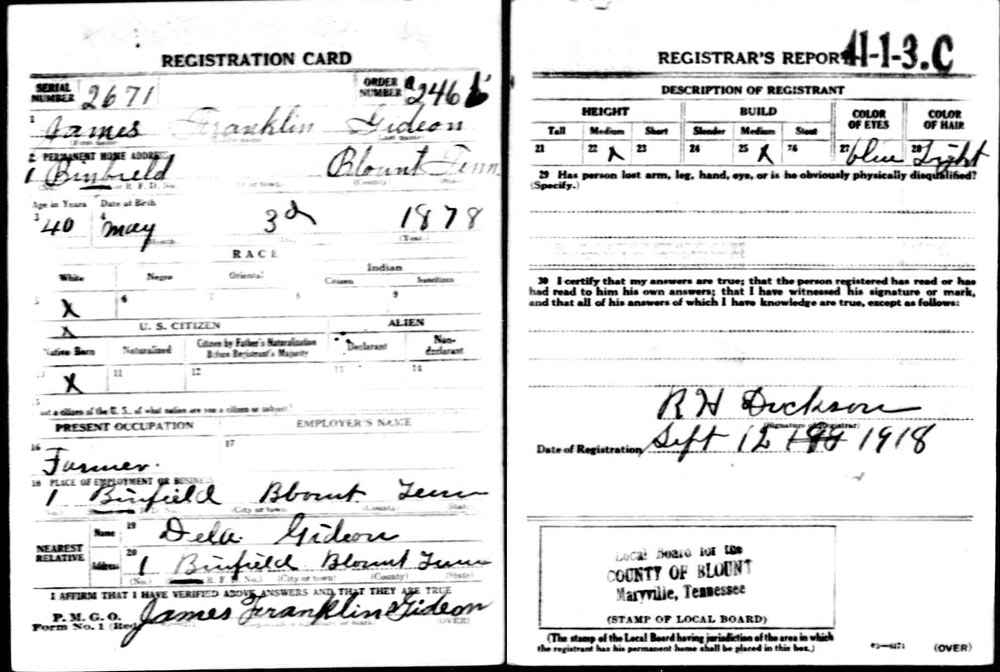 REGISTRATION CARD
SERIAL NUMBER 2671 ORDER NUMBER 246
1 James Franklin Gideon
2 PERMANENT HOME ADDRESS:
1 Binfield Blount Tenn
(No.) or R. F. D. No. (City or town) (County) (State)
Age in Years Date of Birth
3 40 4 May 3d 1878
(Month) (Day) (Year)
RACE
White Negro Oriental Indian
Citizen Noncitizen
5 X 6 7 8 9
X U. S. CITIZEN ALIEN
Native Born Naturalized Citizen by Father's Naturalization Before Registrant's Majority Declarant Non-declarant
X 11 12 13 14
15
not a citizen of the U. S., of what nation are you a citizen or subject?
PRESENT OCCUPATION EMPLOYER'S NAME
16 Farmer. 17
18 PLACE OF EMPLOYMENT OR BUSINESS:
1 Binfield Blount Tenn
(No.) (City or town) (County) (State)
NEAREST RELATIVE Name 19 Dela Gideon
Address 20 1 Binfield Blount Tenn
(No.) R. F. D. No.) (City or town) (County) (State)
I AFFIRM THAT I HAVE VERIFIED ABOVE ANSWERS AND THAT THEY ARE TRUE
P. M. G. O.
Form No. 1 (Red) James Franklin Gideon
(OVER)
REGISTRAR'S REPORT 41-1-3.C
DESCRIPTION OF REGISTRANT
HEIGHT BUILD COLOR OF EYES COLOR OF HAIR
Tall Medium Short Slender Medium Stout
21 22 X 23 24 25 X 26 27 blue 28 Light
29 Has person lost arm, leg, hand, eye, or is he obviously physically disqualified?
(Specify.)
30 I certify that my answers are true; that the person registered has read or has
had read to him his own answers; that I have witnessed his signature or mark,
and that all of his answers of which I have knowledge are true, except as follows:
R H Dickson
(Signature of Registrar)
Date of Registration Sept 12 1918
Local Board for the
COUNTY OF BLOUNT
Maryville, Tennessee
(STAMP OF LOCAL BOARD)
(The stamp of the Local Board having jurisdiction of the area in which
the registrant has his permanent home shall be placed in this box.)
03-6171 (OVER)